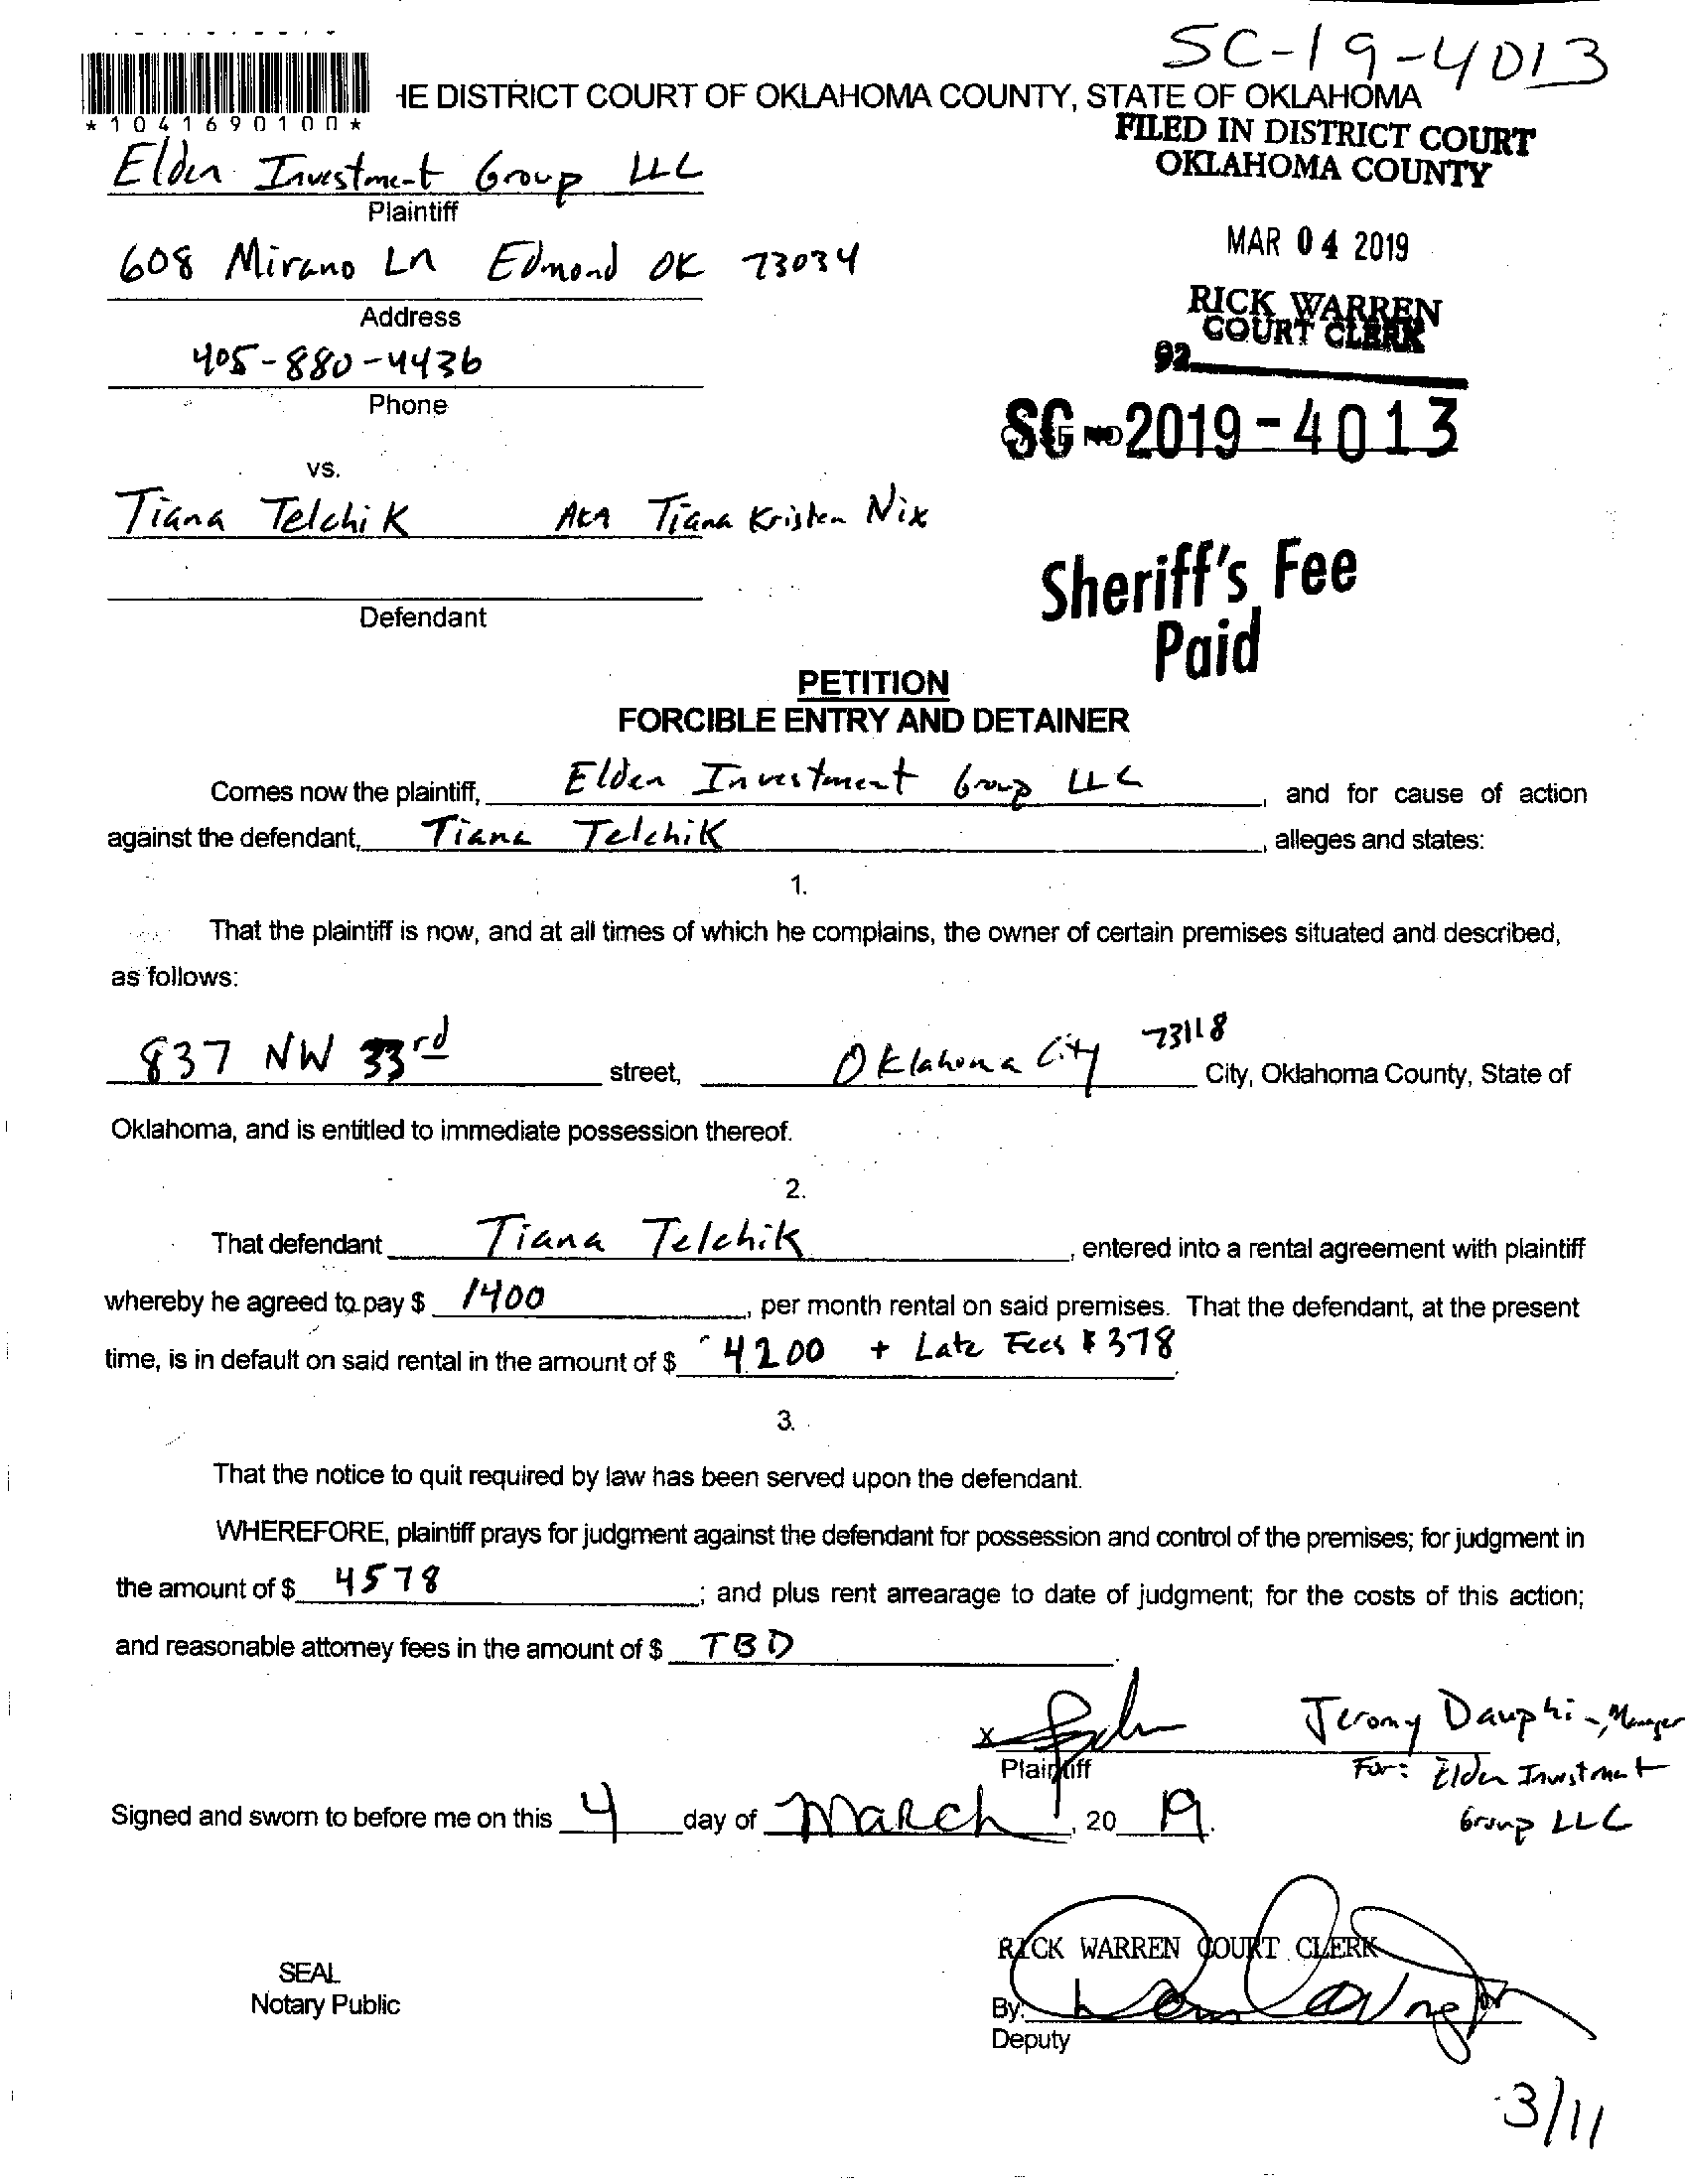 SC-19-4013
*1041690100*
HE DISTRICT COURT OF OKLAHOMA COUNTY, STATE OF OKLAHOMA
FILED IN DISTRICT COURT
OKLAHOMA COUNTY
Elden Investment Group LLC
Plaintiff
608 Mirano Ln Edmond OK 73034
MAR 04 2019
Address
RICK WARREN
COURT CLERK
92
405-880-4436
Phone
SC-2019-4013
vs.
Tiana Telchik AKA Tiana Kristen Nix
Defendant
Sheriff's Fee
Paid
PETITION
FORCIBLE ENTRY AND DETAINER
Comes now the plaintiff, Elden Investment Group LLC, and for cause of action
against the defendant, Tiana Telchik, alleges and states:
1.
That the plaintiff is now, and at all times of which he complains, the owner of certain premises situated and described,
as follows:
837 NW 33rd street, Oklahoma City 73118 City, Oklahoma County, State of
Oklahoma, and is entitled to immediate possession thereof.
2.
That defendant Tiana Telchik, entered into a rental agreement with plaintiff
whereby he agreed to pay $ 1400, per month rental on said premises. That the defendant, at the present
time, is in default on said rental in the amount of $ 4200 + Late Fees $378.
3.
That the notice to quit required by law has been served upon the defendant.
WHEREFORE, plaintiff prays for judgment against the defendant for possession and control of the premises; for judgment in
the amount of $ 4578; and plus rent arrearage to date of judgment; for the costs of this action;
and reasonable attorney fees in the amount of $ TBD.
x Jeromy Dauphin, Manager
Plaintiff For: Elden Investment
Signed and sworn to before me on this 4 day of March, 20 19. Group LLC
RICK WARREN COURT CLERK
SEAL
Notary Public
By:
Deputy
3/11